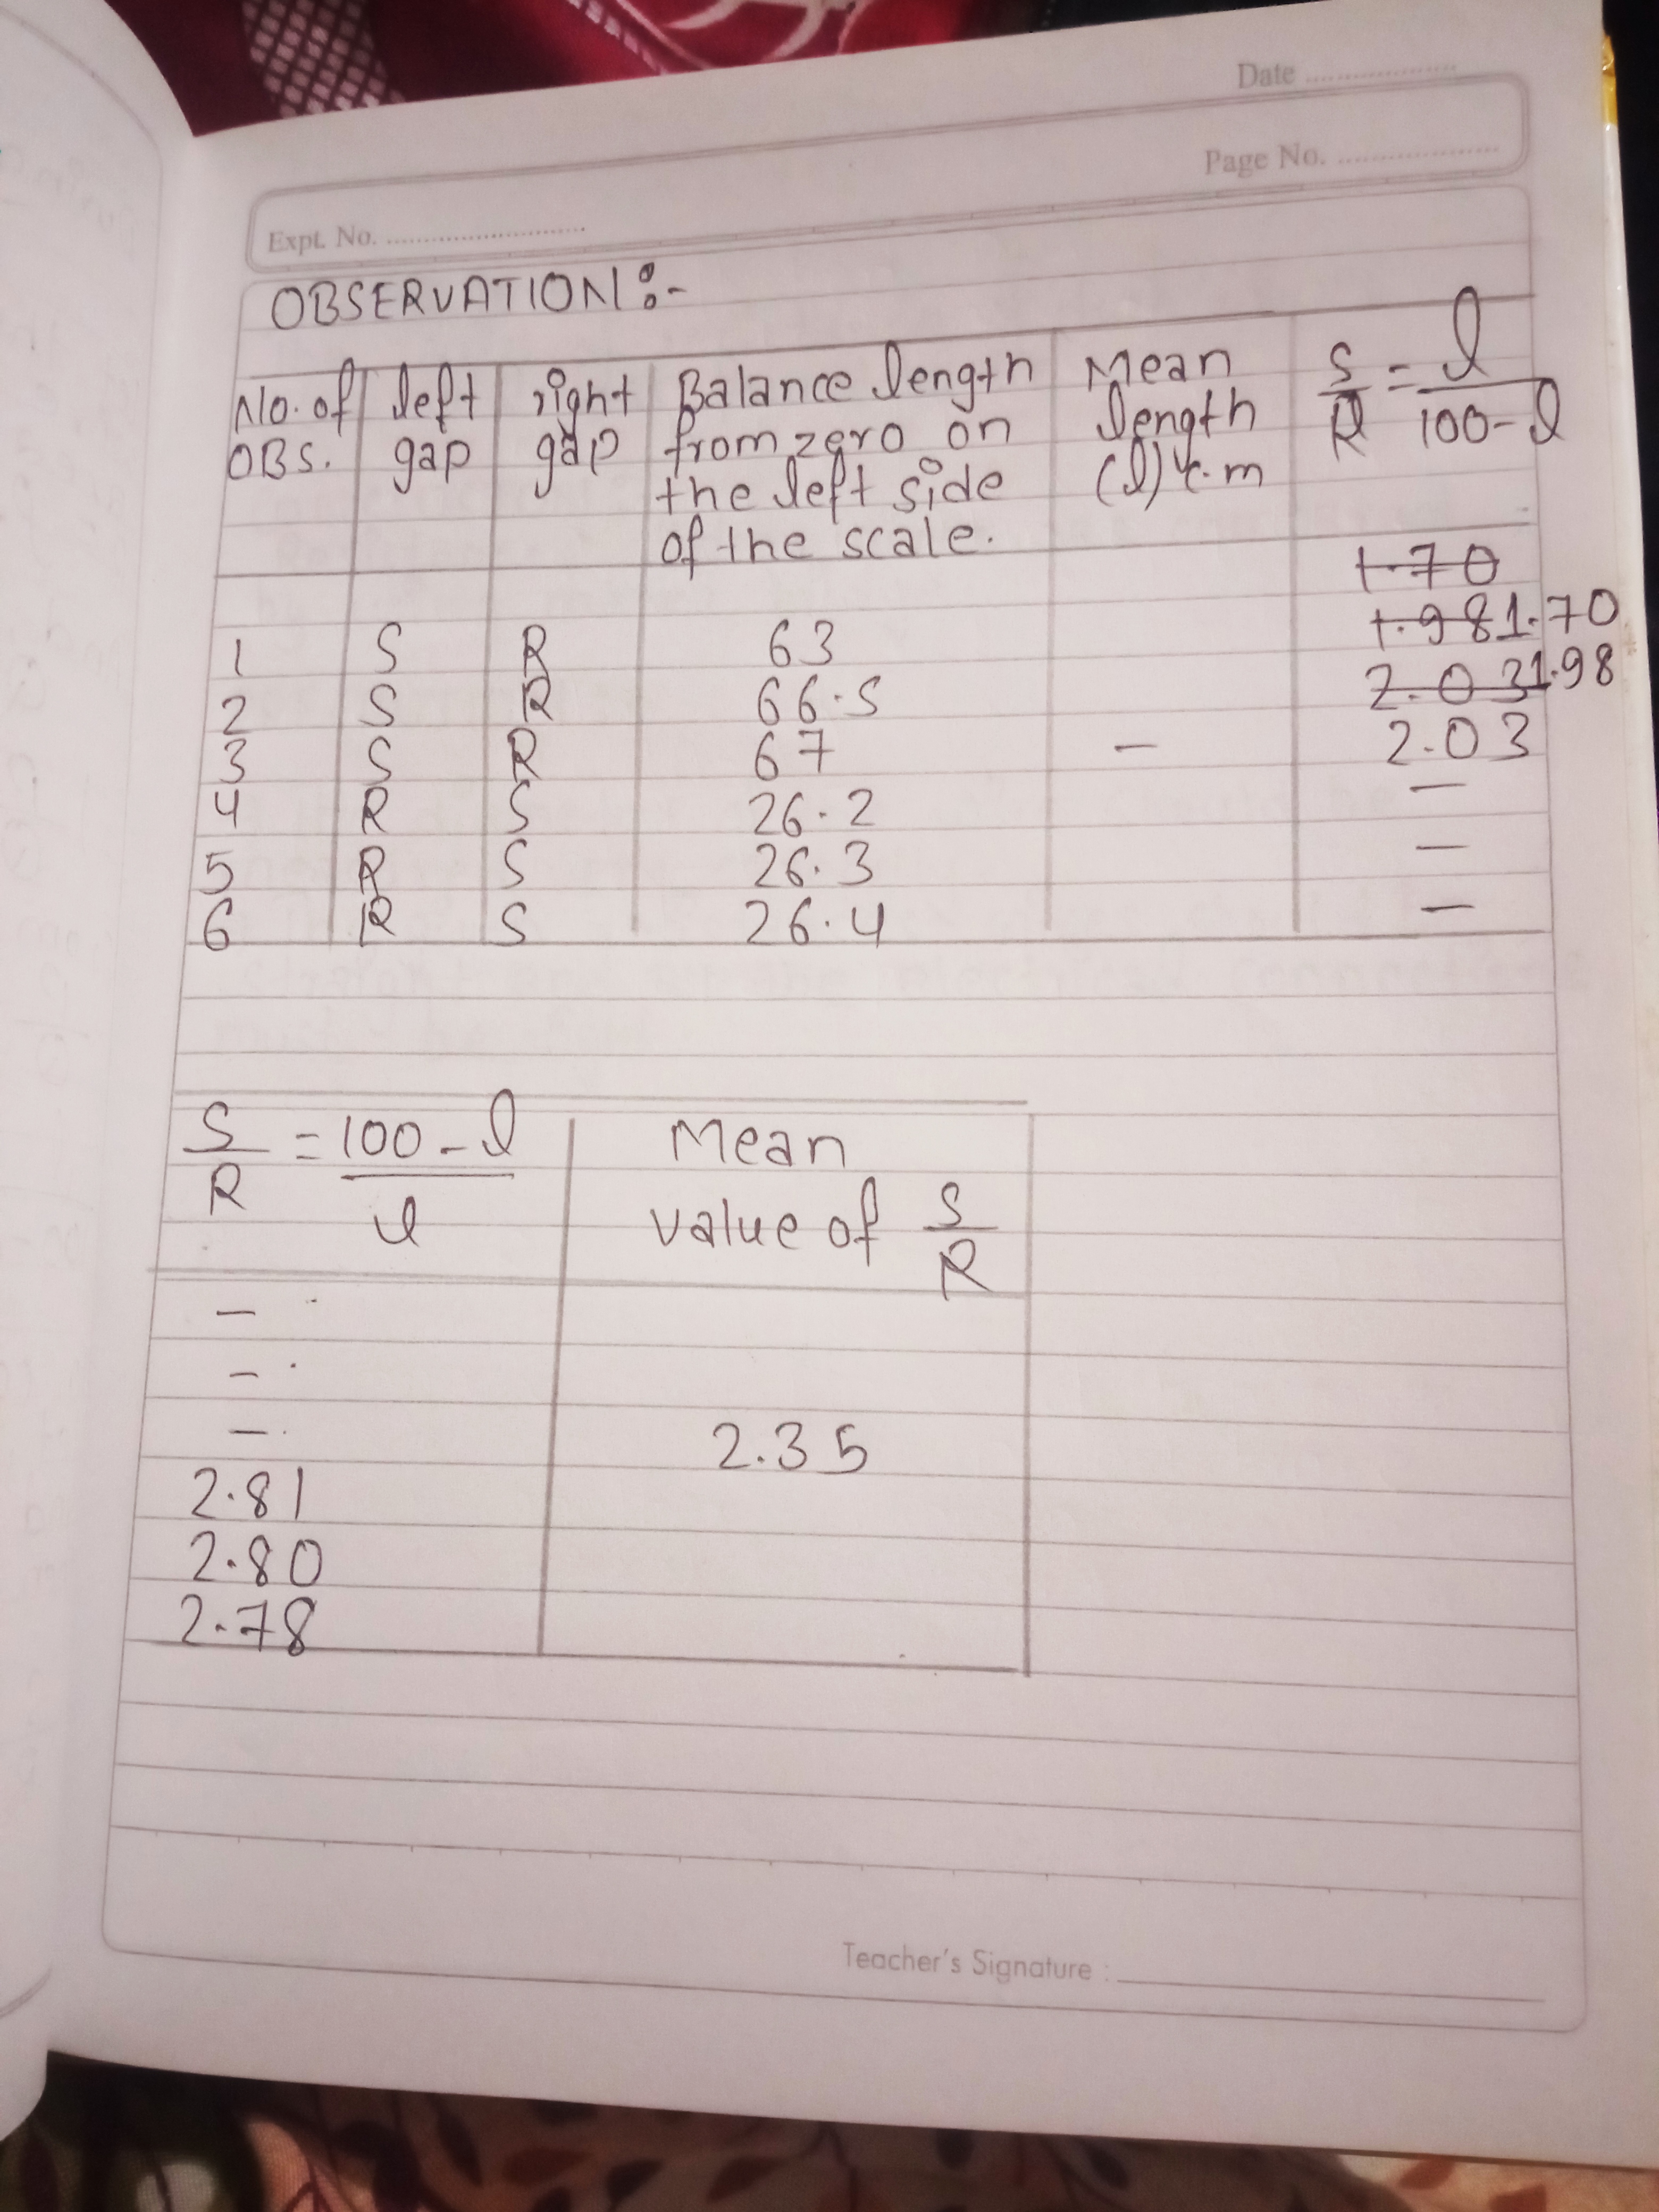 Date ....................
Page No. ......................
Expt. No. ..........................
OBSERVATION :-
No. of OBS. left gap right gap Balance length from zero on the left side of the scale. Mean length (l) c.m S/R = l/100-l
1.70
1.98 1.70
2.03 1.98
1 S R 63
2 S R 66.5
3 S R 67 — 2.03
4 R S 26.2 —
5 R S 26.3 —
6 R S 26.4 —
S/R = 100-l/l Mean value of S/R
—
—
— 2.35
2.81
2.80
2.78
Teacher's Signature : ____________________